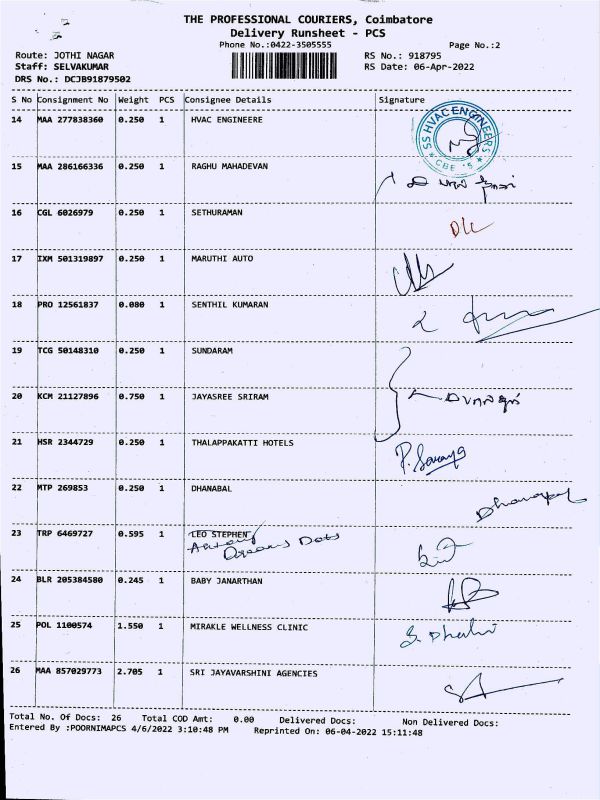 THE PROFESSIONAL COURIERS, Coimbatore
Delivery Runsheet - PCS
Phone No.:0422-3505555 Page No.:2
Route: JOTHI NAGAR RS No.: 918795
Staff: SELVAKUMAR RS Date: 06-Apr-2022
DRS No.: DCJB91879502
S No Consignment No Weight PCS Consignee Details Signature
14 MAA 277838360 0.250 1 HVAC ENGINEERE
SS HVAC ENGINEERS
CBE
15 MAA 286166336 0.250 1 RAGHU MAHADEVAN
16 CGL 6026979 0.250 1 SETHURAMAN
17 IXM 501319897 0.250 1 MARUTHI AUTO
18 PRO 12561837 0.080 1 SENTHIL KUMARAN
19 TCG 50148310 0.250 1 SUNDARAM
20 KCM 21127896 0.750 1 JAYASREE SRIRAM
21 HSR 2344729 0.250 1 THALAPPAKATTI HOTELS
22 MTP 269853 0.250 1 DHANABAL
23 TRP 6469727 0.595 1 LEO STEPHEN
24 BLR 205384580 0.245 1 BABY JANARTHAN
25 POL 1100574 1.550 1 MIRAKLE WELLNESS CLINIC
26 MAA 857029773 2.705 1 SRI JAYAVARSHINI AGENCIES
Total No. Of Docs: 26 Total COD Amt: 0.00 Delivered Docs: Non Delivered Docs:
Entered By :POORNIMAPCS 4/6/2022 3:10:48 PM Reprinted On: 06-04-2022 15:11:48